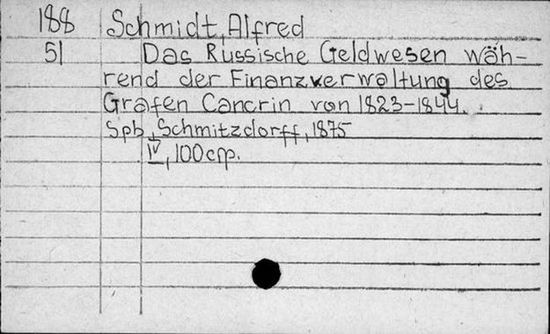 188 Schmidt, Alfred
51 Das Russische Geldwesen wäh-
rend der Finanzverwaltung des
Grafen Cancrin von 1823-1844.
Spb, Schmitzdorff, 1875
IV, 100 стр.